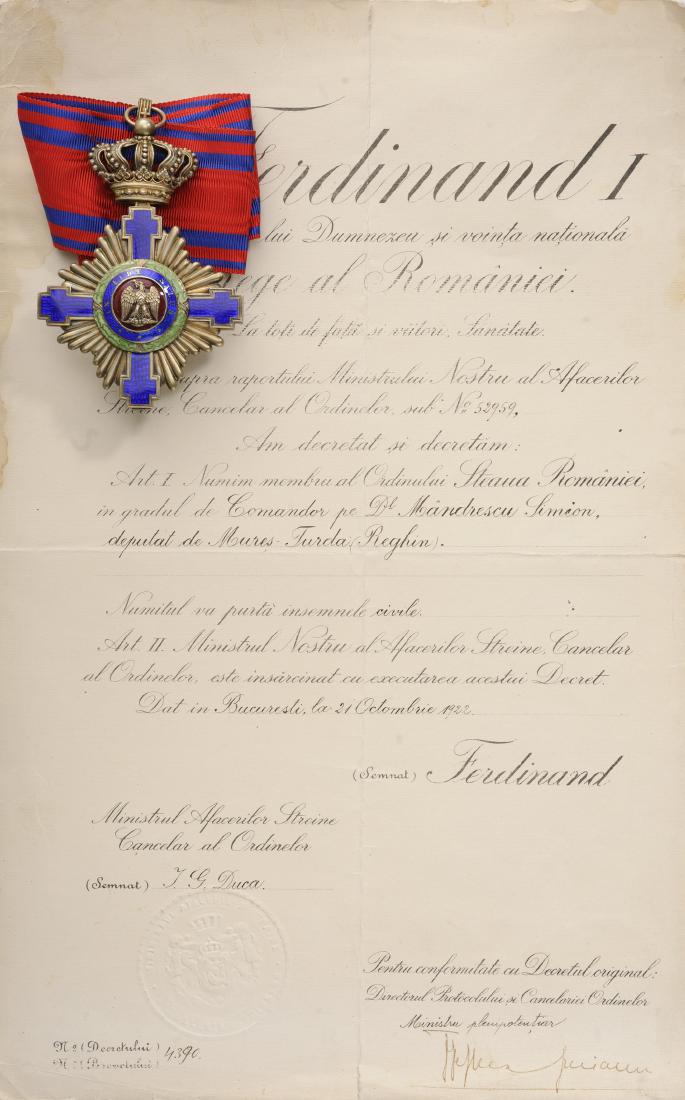 Ferdinand I
lui Dumnezeu și voința națională
Rege al României.
La toți de față și viitori, Sănătate.
supra raportului Ministrului Nostru al Afacerilor
Streine, Cancelar al Ordinelor, sub No 52959,
Am decretat și decretăm:
Art. I. Numim membru al Ordinului Steaua României,
în gradul de Comandor pe Dl Mândrescu Simion,
deputat de Mureș-Turda (Reghin).
Numitul va purtă însemnele civile.
Art. II. Ministrul Nostru al Afacerilor Streine, Cancelar
al Ordinelor, este însărcinat cu executarea acestui Decret.
Dat în București, la 21 Octombrie 1922
(Semnat) Ferdinand
Ministrul Afacerilor Streine
Cancelar al Ordinelor
(Semnat) I. G. Duca.
Pentru conformitate cu Decretul original:
Directorul Protocolului și Cancelariei Ordinelor
Ministru plenipotențiar
No (Decretului) 4390.
No (Brevetului)